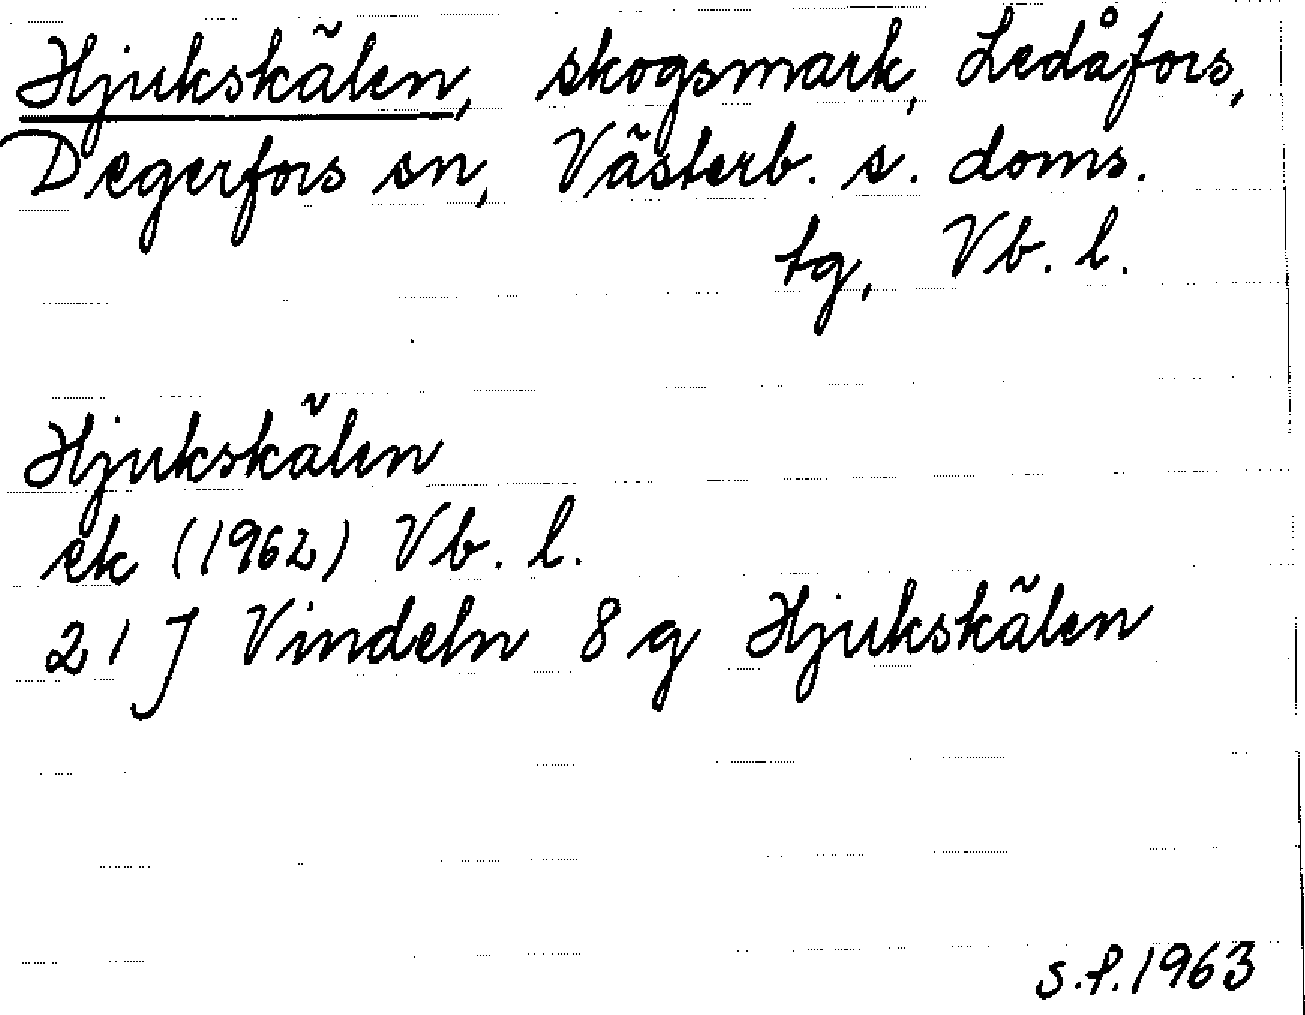 Hjukskälen, skogsmark, Ledåfors,
Degerfors sn, Västerb. s. doms.
tg, Vb. l.
Hjukskälen
ek (1962) Vb. l.
21 J Vindeln 8 g Hjukskälen
s.f. 1963